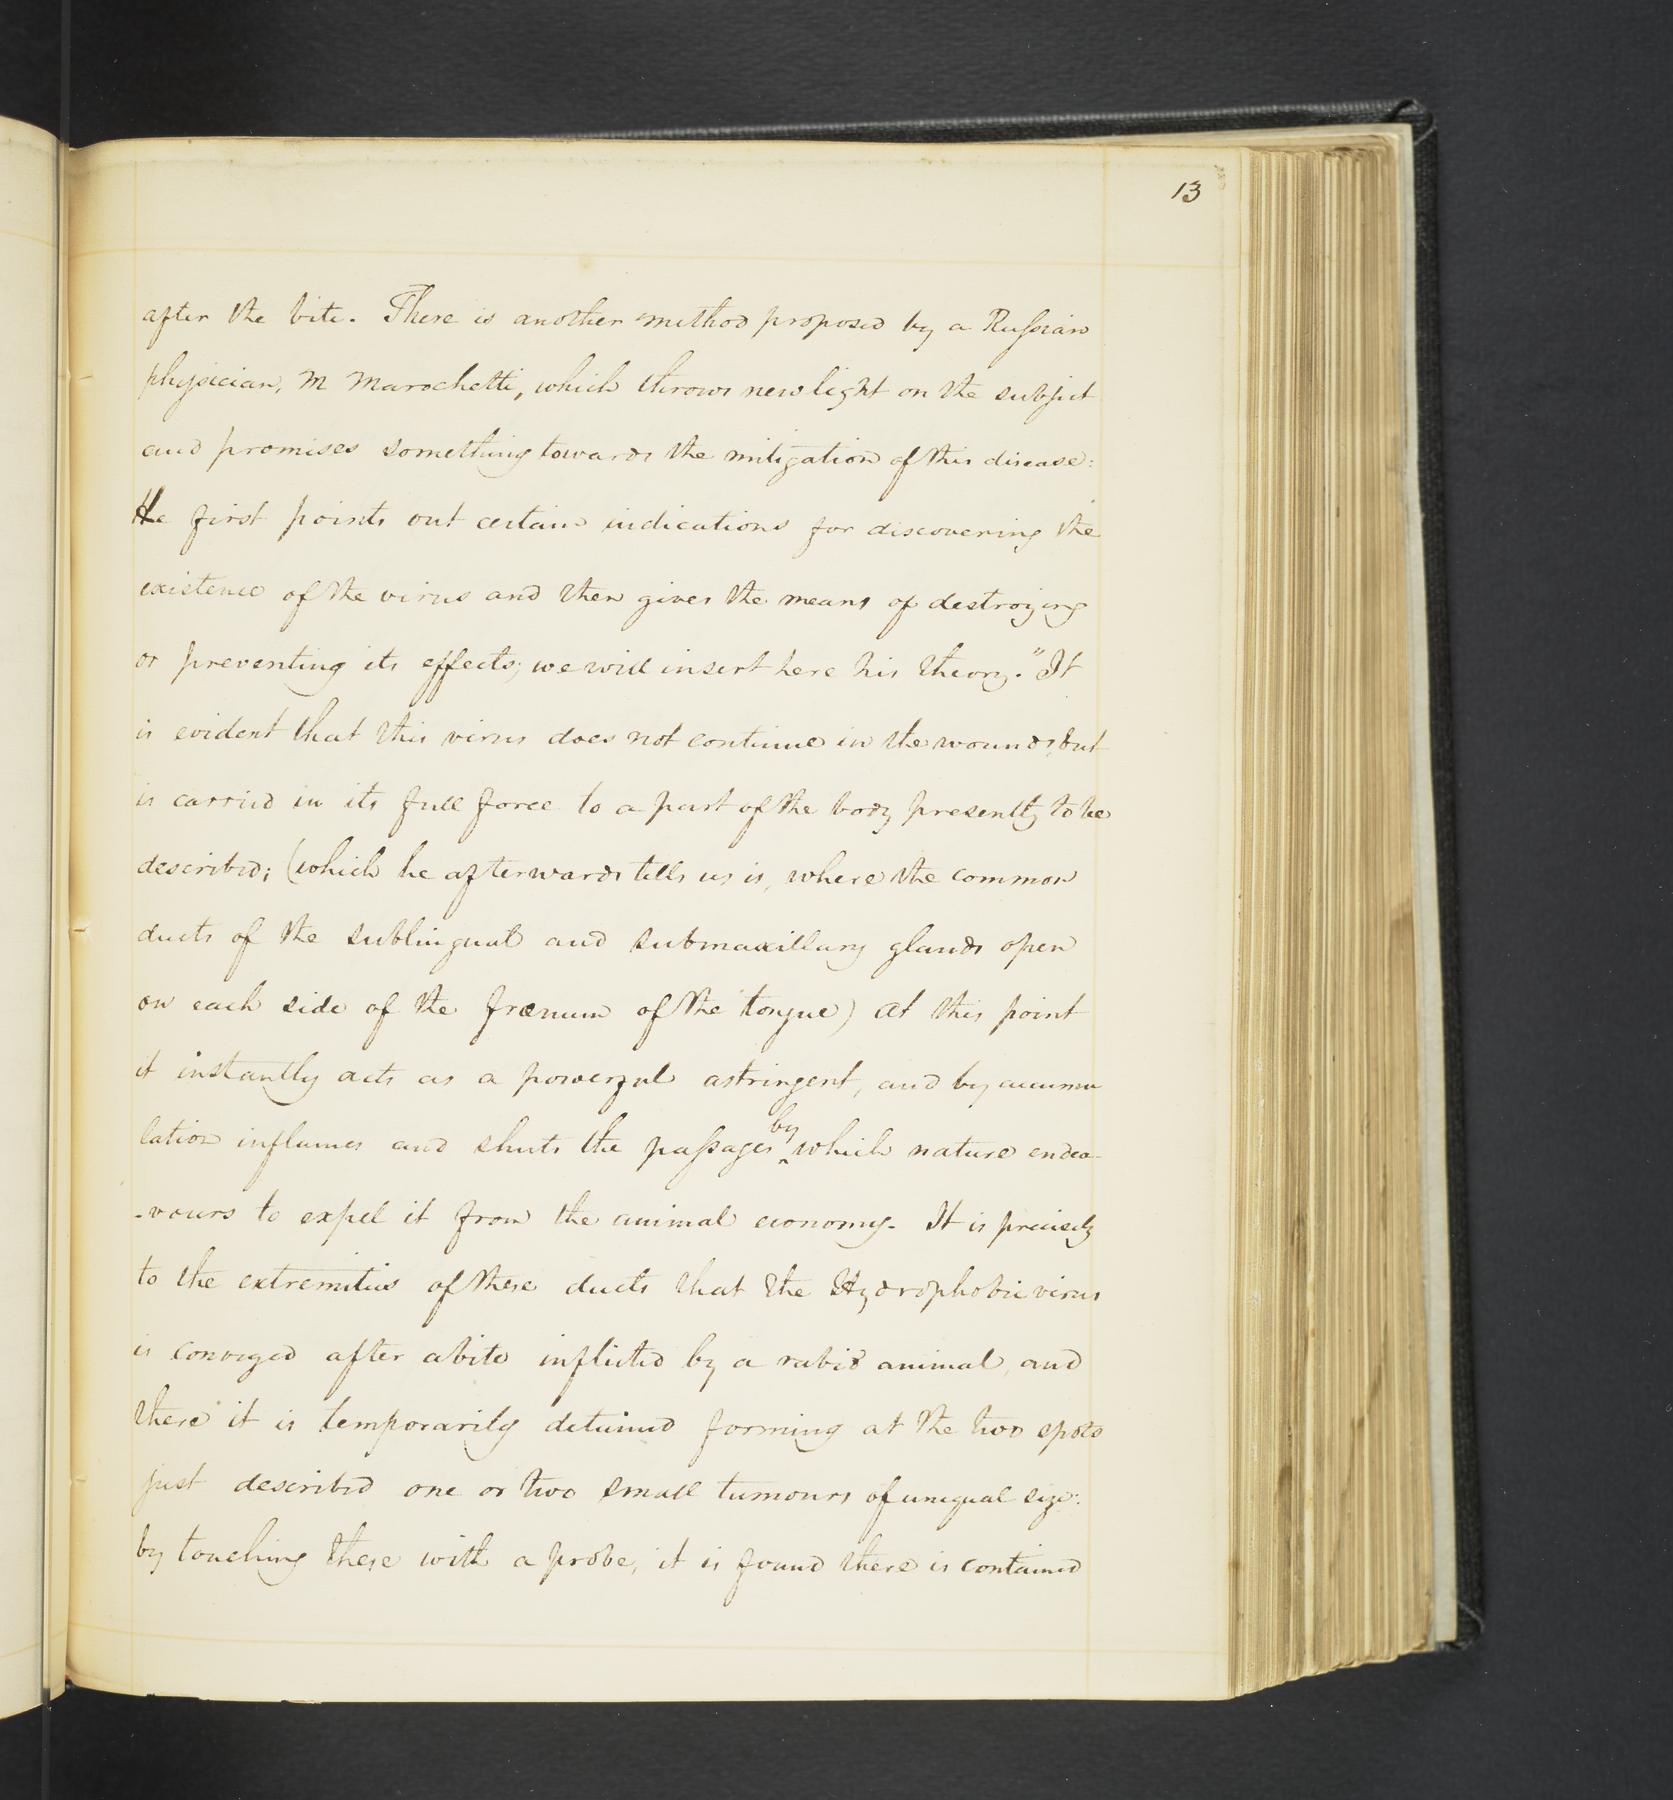 13
after the bite. There is another method proposed by a Russian
physician, M Marochetti, which throws new light on the subject
and promises something towards the mitigation of this disease:
He first points out certain indications for discovering the
existence of the virus and then gives the means of destroying
or preventing its effects; we will insert here his theory. "It
is evident that this virus does not continue in the wounds, but
is carried in its full force to a part of the body presently to be
described; (which he afterwards tells us is, where the common
ducts of the sublingual and submaxillary glands open
on each side of the frænum of the tongue) at this point
it instantly acts as a powerful astringent, and by accumu
lation inflames and shuts the passages by which nature endea-
-vours to expel it from the animal economy. It is precisely
to the extremities of these ducts that the Hydrophobic virus
is conveyed after a bite inflicted by a rabid animal, and
there it is temporarily detained forming at the two spots
just described one or two small tumours of unequal size:
by touching these with a probe, it is found there is contained